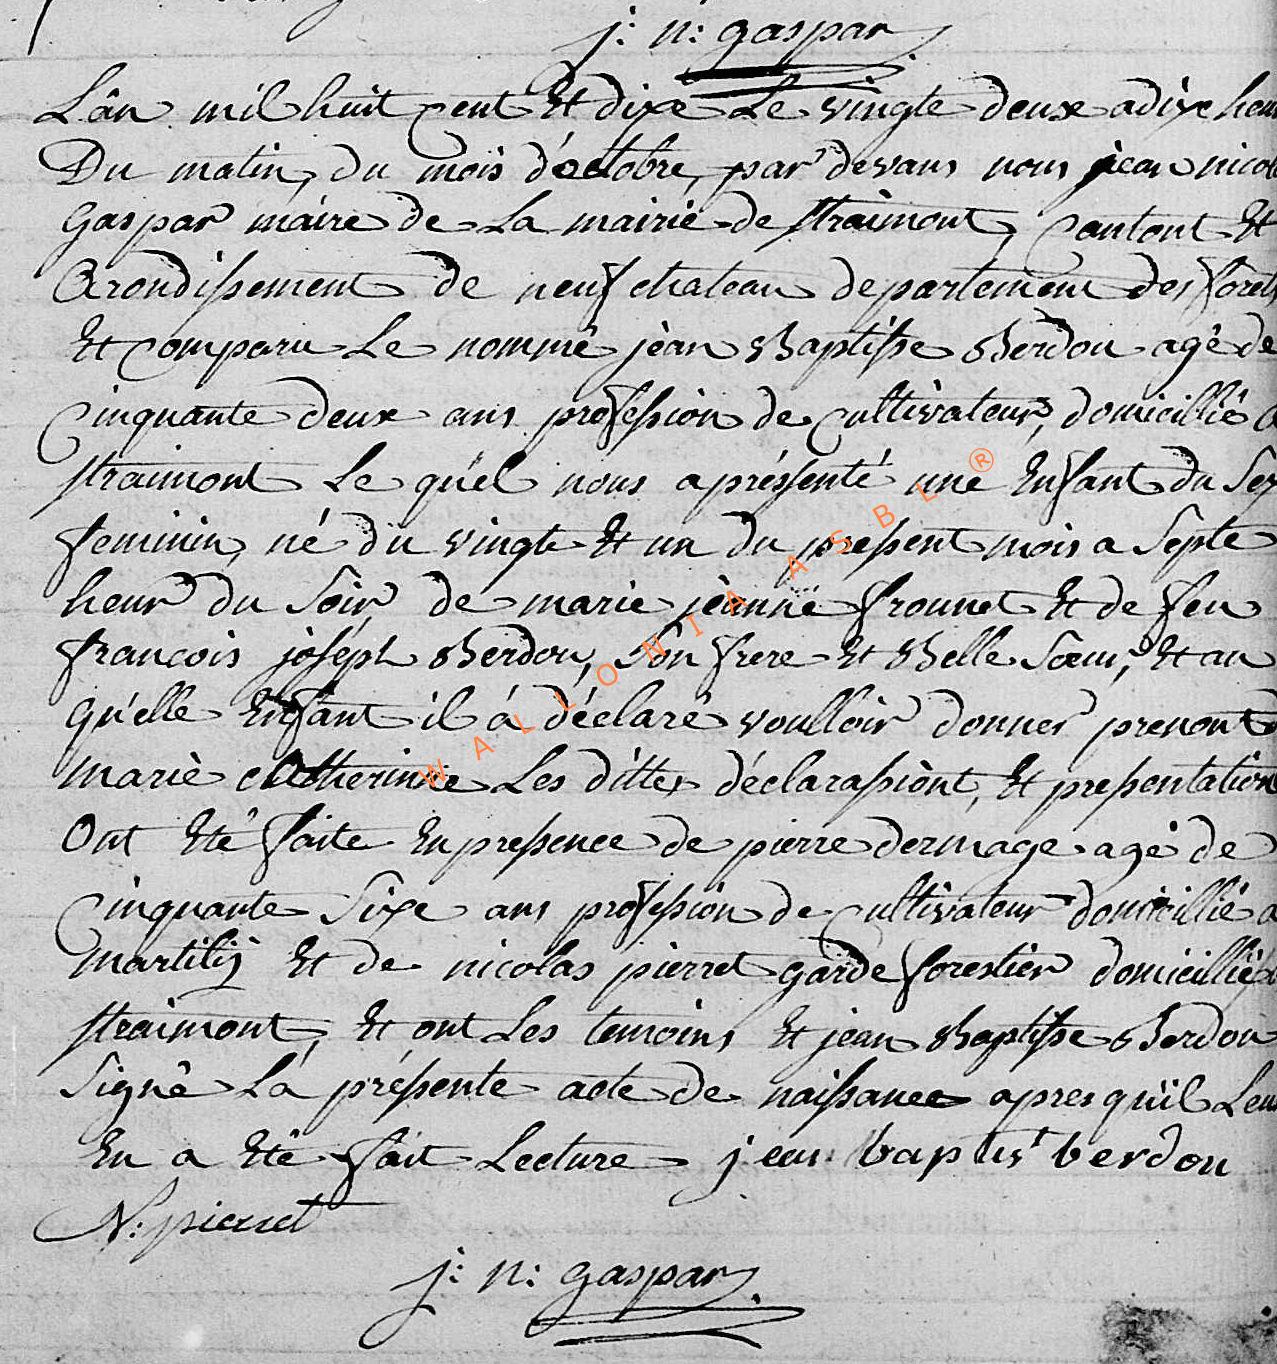 j: n: gaspar
L'ân mil huit cent Et dixe Le vingte deux a dixe heur
Du matin, du mois d'octobre, par devans nous jean nicol
gaspar maire de La mairie de straimont, Cantont Et
Arondissement de neufchateau departement des forets
Et Comparu Le nommé jèan Baptisse Berdou agé de
Cinquante deux ans profession de Cultivateur, domicillié a
straimont Le quel nous apréssenté une Enfant du Sex
feminin, né du vingte Et un du pressent mois a Septe
heur du Soir, de marie jeanne frounet Et de feu
francois joséph Berdou, Son frere Et Belle Sœur, Et au
qu'elle Enfant il á déclaré voulloir donner prenont
Mariè Catherinne Les dittes déclarassiònt, Et pressentation
Ont Eté faite En pressence de pierre dermage agé de
Cinquante Sixe ans profession de Cultivateur domicillié a
Martilij Et de nicolas pierret garde forestier domicillié a
straimont, Et ont Les temoins Et jean Baptisse Berdou
Signé La préssente acte de naissance apres qu'il Leur
En a Eté fait Lecture jean baptist berdou
N: pierret
j: n: gaspar
WALLONIA ASBL ®